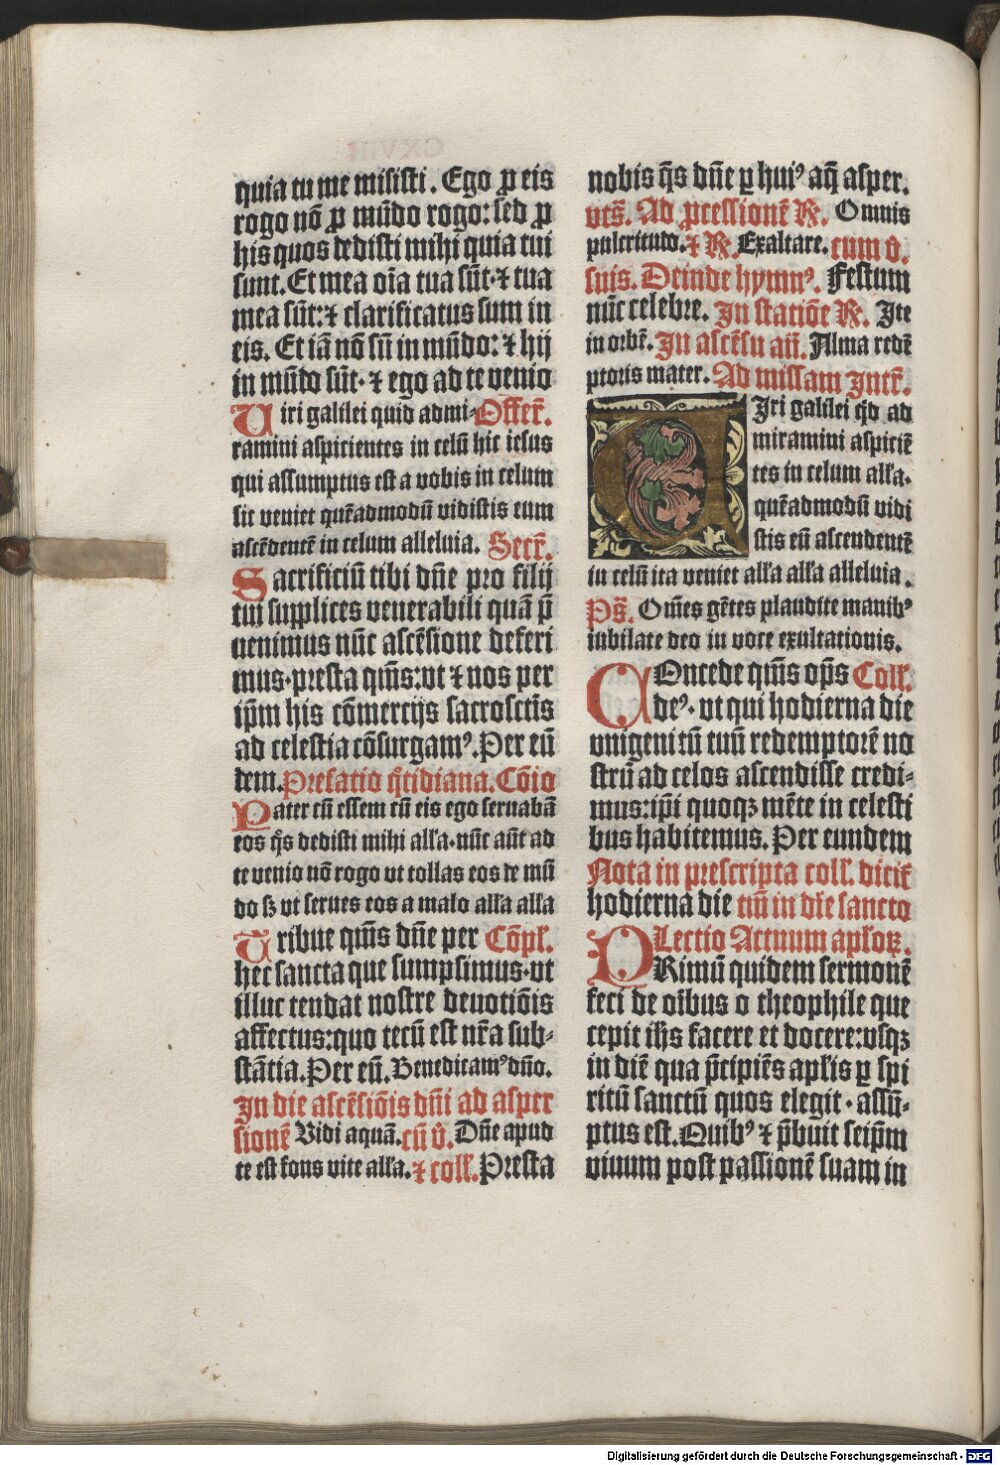 quia tu me misisti. Ego ꝓ eis
rogo nō ꝓ mūdo rogo: sed ꝓ
his quos dedisti mihi quia tui
sunt. Et mea oīa tua sūt ⁊ tua
mea sūt: ⁊ clarificatus sum in
eis. Et iā nō sū in mūdo: ⁊ hij
in mūdo sūt. ⁊ ego ad te venio
Uiri galilei quid admi- Offer̄.
ramini aspicientes in celū hic iesus
qui assumptus est a vobis in celum
sic veniet quēadmodū vidistis eum
ascēdentē in celum alleluia. Secr̄.
Sacrificiū tibi dn̄e pro filij
tui supplices venerabili quā p̄
uenimus nūc ascēsione deferi
mus. presta qm̄s: vt ⁊ nos per
ip̄m his cōmercijs sacrosctīs
ad celestia cōsurgamꝰ. Per eū
dem. Prefatio q̄tidiana. Cōio
Pater cū essem cū eis ego seruabā
eos q̄s dedisti mihi alľa. nūc aūt ad
te venio nō rogo vt tollas eos de mū
do sꝫ vt serues eos a malo alľa alľa
Tribue qm̄s dn̄e per Cōpl̄.
hec sancta que sumpsimus. vt
illuc tendat nostre deuotiōis
affectus: quo tecū est nr̄a sub-
stātia. Per eū. Benedicamꝰ dn̄o.
In die ascēsiōis dn̄i ad asper
sionē Vidi aquā. cū v̄. Dn̄e apud
te est fons vite alľa. ⁊ coll̄. Presta
nobis q̄s dn̄e ꝑ huiꝰ aq̄ asper.
vts̄. Ad ꝓcessionē ℞. Omnis
pulcritudo. ⁊ ℞. Exaltare. cum v̄.
suis. Deinde hymnꝰ. Festum
nūc celebre. In statiōe ℞. Ite
in orbē. In ascēsu an̄. Alma redē
ptoris mater. Ad missam Intr̄.
Uiri galilei qd̄ ad
miramini aspiciē
tes in celum alľa.
quēadmodū vidi
stis eū ascendentē
in celū ita veniet alľa alľa alleluia.
Ps̄. Om̄es gētes plaudite manibꝰ
iubilate deo in voce exultationis.
COncede qm̄s op̄s Coll̄.
deꝰ. vt qui hodierna die
vnigenitū tuū redemptorē no
strū ad celos ascendisse credi-
mus: ip̄i quoqꝫ mēte in celesti
bus habitemus. Per eundem
Nota in prescripta coll̄. dicit̄
hodierna die tm̄ in die sancto
Lectio Actuum apl̄oꝝ.
PRimū quidem sermonē
feci de oībus o theophile que
cepit ih̄s facere et docere: vsqꝫ
in diē qua p̄cipiēs apl̄is ꝑ spi
ritū sanctū quos elegit. assū-
ptus est. Quibꝰ ⁊ p̄buit seip̄m
viuum post passionē suam in
Digitalisierung gefördert durch die Deutsche Forschungsgemeinschaft - DFG